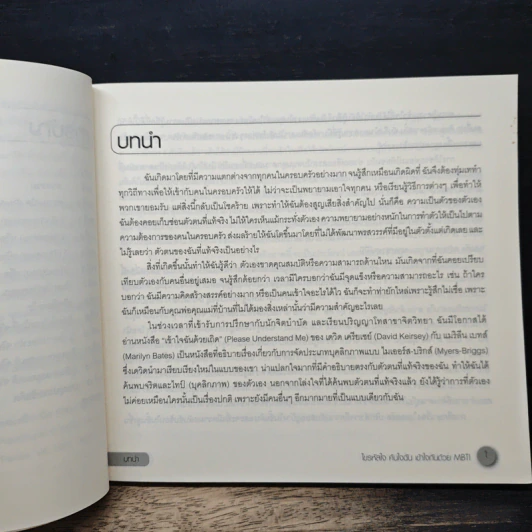 บทนำ
ฉันเกิดมาโดยที่มีความแตกต่างจากทุกคนในครอบครัวอย่างมาก จนรู้สึกเหมือนเกิดผิดที่ ฉันจึงต้องทุ่มเททำ
ทุกวิถีทางเพื่อให้เข้ากับคนในครอบครัวให้ได้ ไม่ว่าจะเป็นพยายามเอาใจทุกคน หรือเรียนรู้วิธีการต่างๆ เพื่อทำให้
พวกเขายอมรับ แต่สิ่งนี้กลับเป็นโชคร้าย เพราะทำให้ฉันต้องสูญเสียสิ่งสำคัญไป นั่นก็คือ ความเป็นตัวของตัวเอง
ฉันต้องคอยเก็บซ่อนตัวตนที่แท้จริง ไม่ให้ใครเห็นแม้กระทั่งตัวเอง ความพยายามอย่างหนักในการทำตัวให้เป็นไปตาม
ความต้องการของคนในครอบครัว ส่งผลร้ายให้ฉันโตขึ้นมาโดยที่ไม่ได้พัฒนาพรสวรรค์ที่มีอยู่ในตัวตั้งแต่เกิดเลย และ
ไม่รู้เลยว่า ตัวตนของฉันที่แท้จริงเป็นอย่างไร
สิ่งที่เกิดขึ้นนั้นทำให้ฉันรู้ดีว่า ตัวเองขาดคุณสมบัติหรือความสามารถด้านไหน มันเกิดจากที่ฉันคอยเปรียบ
เทียบตัวเองกับคนอื่นอยู่เสมอ จนรู้สึกด้อยกว่า เวลามีใครบอกว่าฉันมีจุดแข็งหรือความสามารถอะไร เช่น ถ้าใคร
บอกว่า ฉันมีความคิดสร้างสรรค์อย่างมาก หรือเป็นคนเข้าใจอะไรได้ไว ฉันก็จะทำท่ายักไหล่เพราะรู้สึกไม่เชื่อ เพราะ
ฉันก็เหมือนกับคุณพ่อคุณแม่ที่บ้านที่ไม่ได้มองสิ่งเหล่านั้นว่ามีความสำคัญอะไรเลย
ในช่วงเวลาที่เข้ารับการปรึกษากับนักจิตบำบัด และเรียนปริญญาโทสาขาจิตวิทยา ฉันมีโอกาสได้
อ่านหนังสือ "เข้าใจฉันด้วยเถิด" (Please Understand Me) ของ เดวิด เคียร์เซย์ (David Keirsey) กับ แมริลีน เบทส์
(Marilyn Bates) เป็นหนังสือที่อธิบายเรื่องเกี่ยวกับการจัดประเภทบุคลิกภาพแบบ ไมเออร์ส-บริกส์ (Myers-Briggs)
ซึ่งเดวิดนำมาเรียบเรียงใหม่ในแบบของเขา น่าแปลกใจมากที่มีคำอธิบายตรงกับตัวตนที่แท้จริงของฉัน ทำให้ฉันได้
ค้นพบจริตและไทป์ (บุคลิกภาพ) ของตัวเอง นอกจากโล่งใจที่ได้ค้นพบตัวตนที่แท้จริงแล้ว ยังได้รู้ว่าการที่ตัวเอง
ไม่ค่อยเหมือนใครนั้นเป็นเรื่องปกติ เพราะยังมีคนอื่นๆ อีกมากมายที่เป็นแบบเดียวกับฉัน
บทนำ
ไขรหัสใจ ค้นใจฉัน เข้าใจกันด้วย MBTI
1